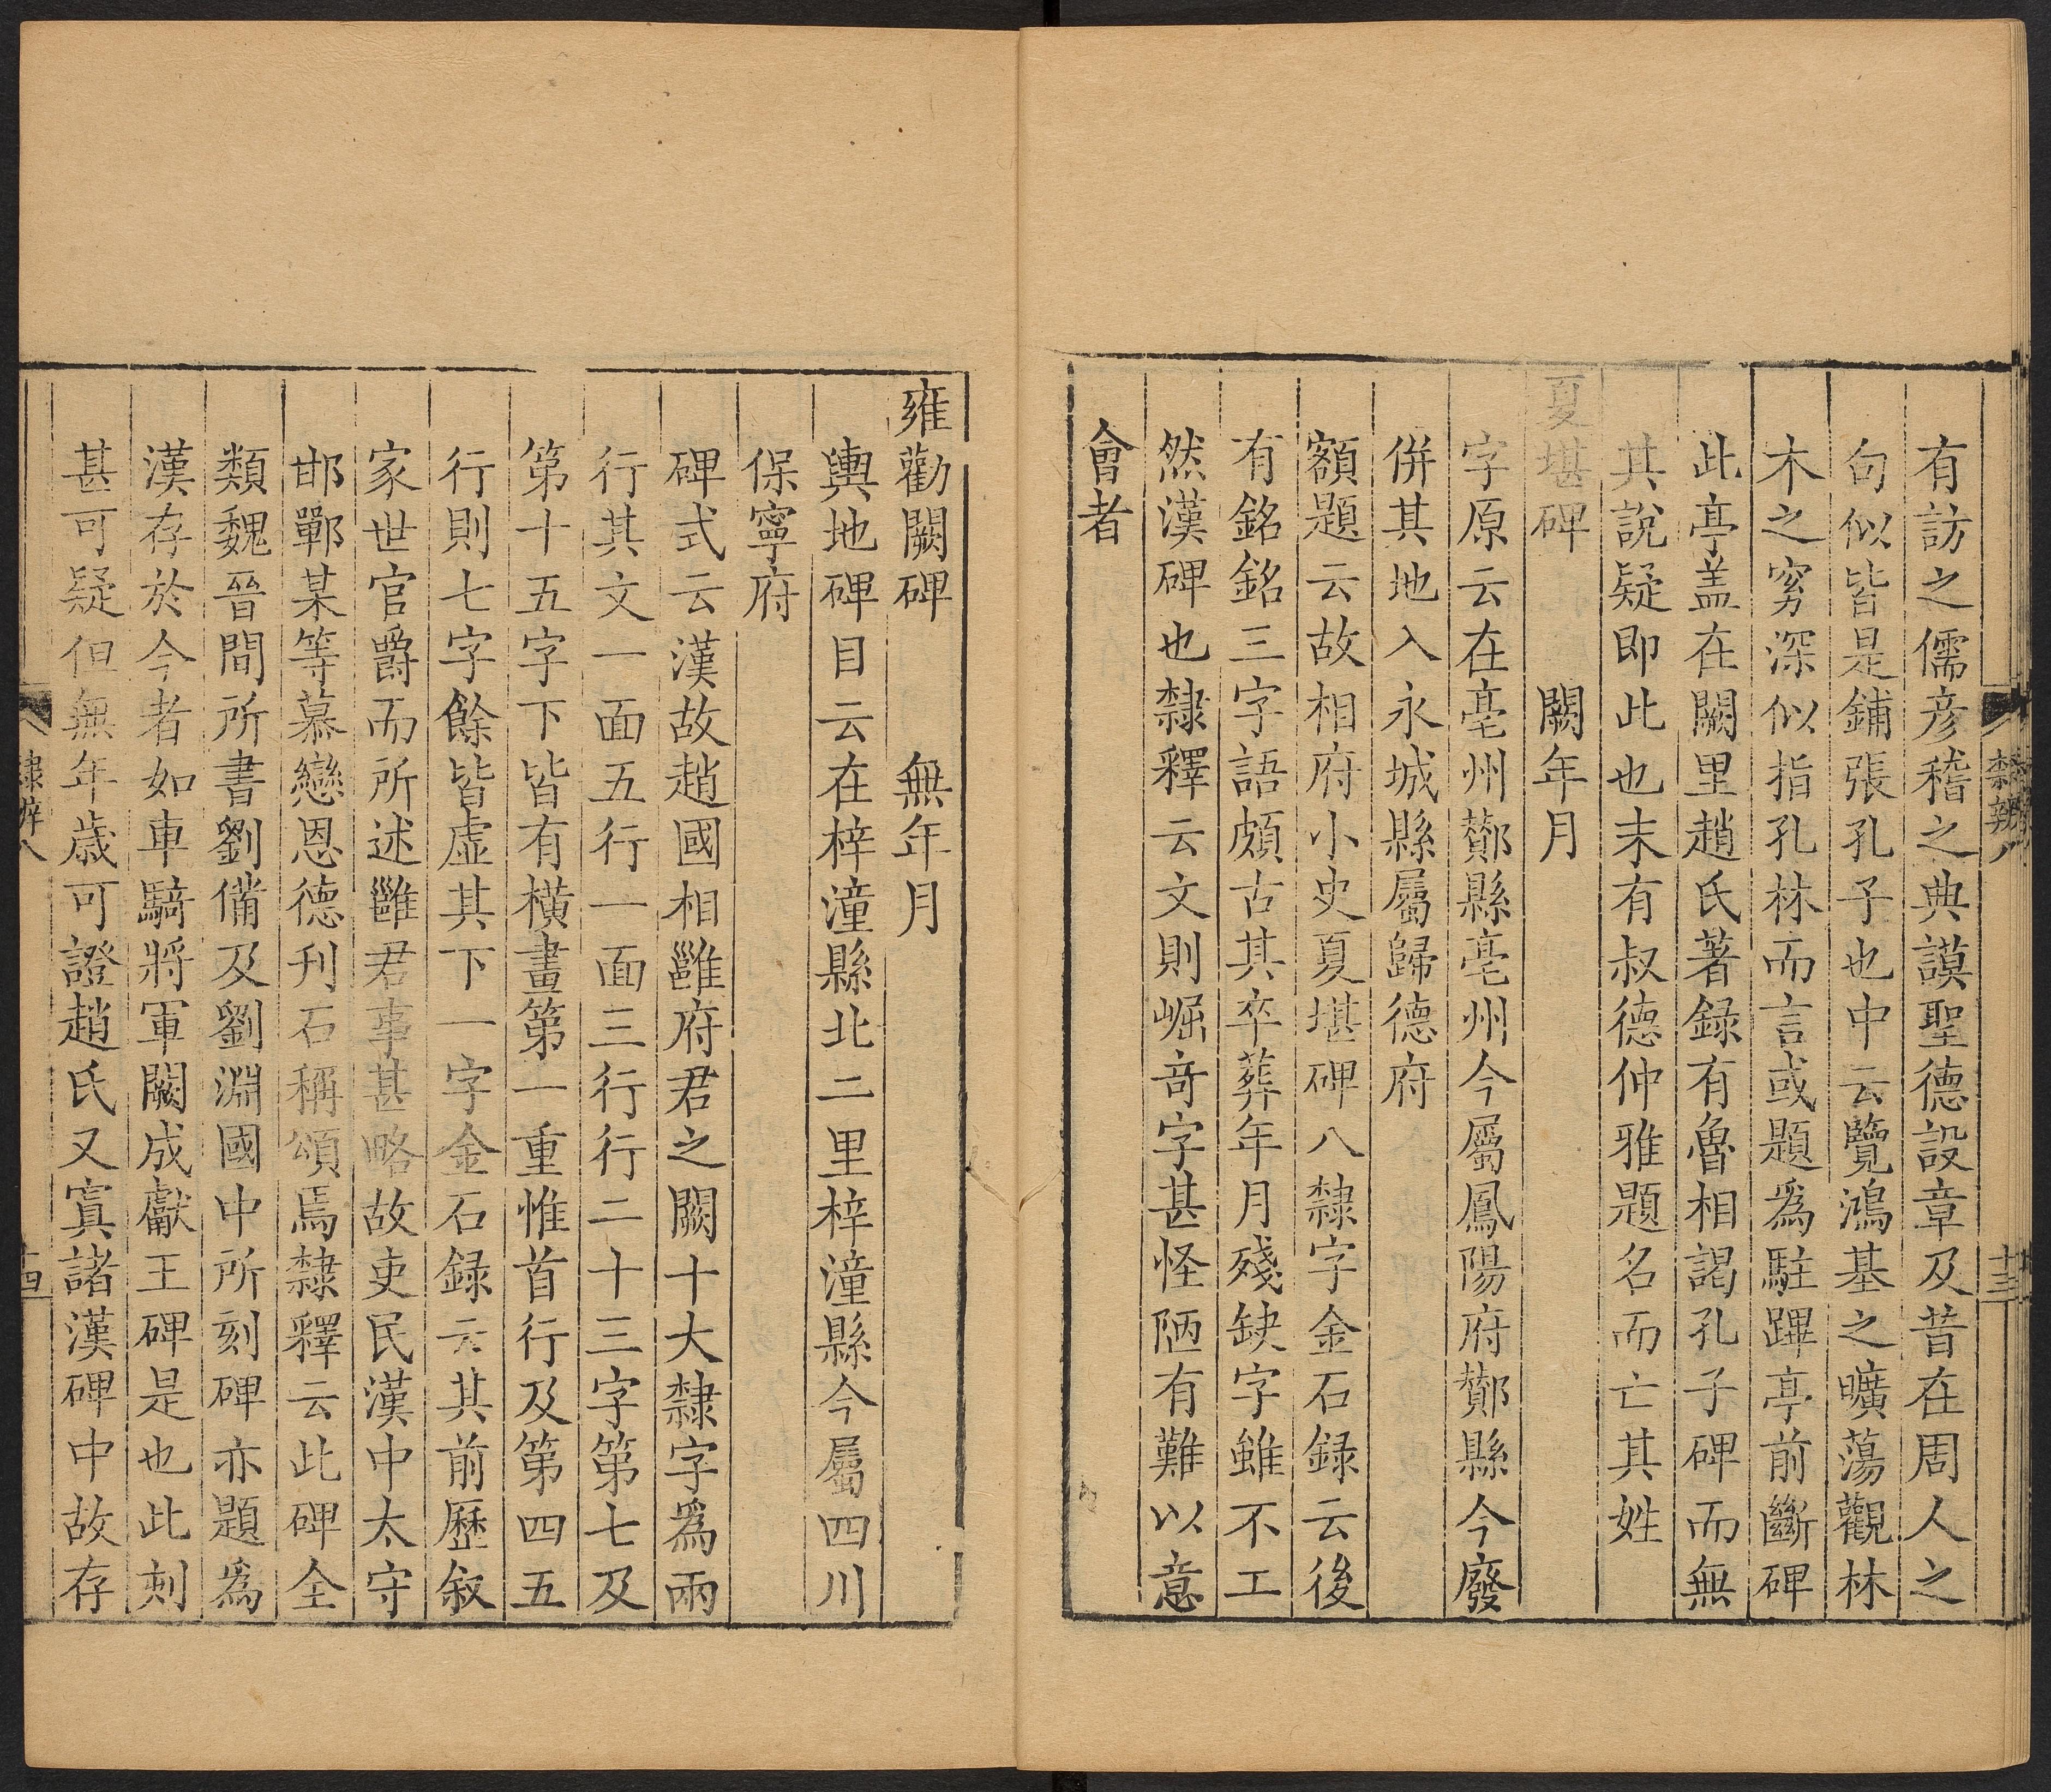 隸辨八
十三
有訪之儒彥稽之典謨聖德設章及昔在周人之
句似皆是鋪張孔子也中云覽鴻基之曠蕩觀林
木之窮深似指孔林而言或題爲駐蹕亭前斷碑
此亭盖在闕里趙氏著録有魯相謁孔子碑而無
其說疑即此也末有叔德仲雅題名而亡其姓
夏堪碑 闕年月
字原云在亳州酇縣亳州今屬鳳陽府酇縣今廢
併其地入永城縣屬歸德府
額題云故相府小史夏堪碑八隸字金石録云後
有銘銘三字語頗古其卒葬年月殘缺字雖不工
然漢碑也隸釋云文則崛奇字甚怪陋有難以意
會者
雍勸闕碑 無年月
輿地碑目云在梓潼縣北二里梓潼縣今屬四川
保寧府
碑式云漢故趙國相雝府君之闕十大隸字爲兩
行其文一面五行一面三行行二十三字第七及
第十五字下皆有横畫第一重惟首行及第四五
行則七字餘皆虛其下一字金石録云其前歷叙
家世官爵而所述雝君事甚略故吏民漢中太守
邯鄲某等慕戀恩德刋石稱頌焉隸釋云此碑全
類魏晉間所書劉備及劉淵國中所刻碑亦題爲
漢存於今者如車騎將軍闕成獻王碑是也此刻
甚可疑但無年歲可證趙氏又寘諸漢碑中故存
隸辨八
十四